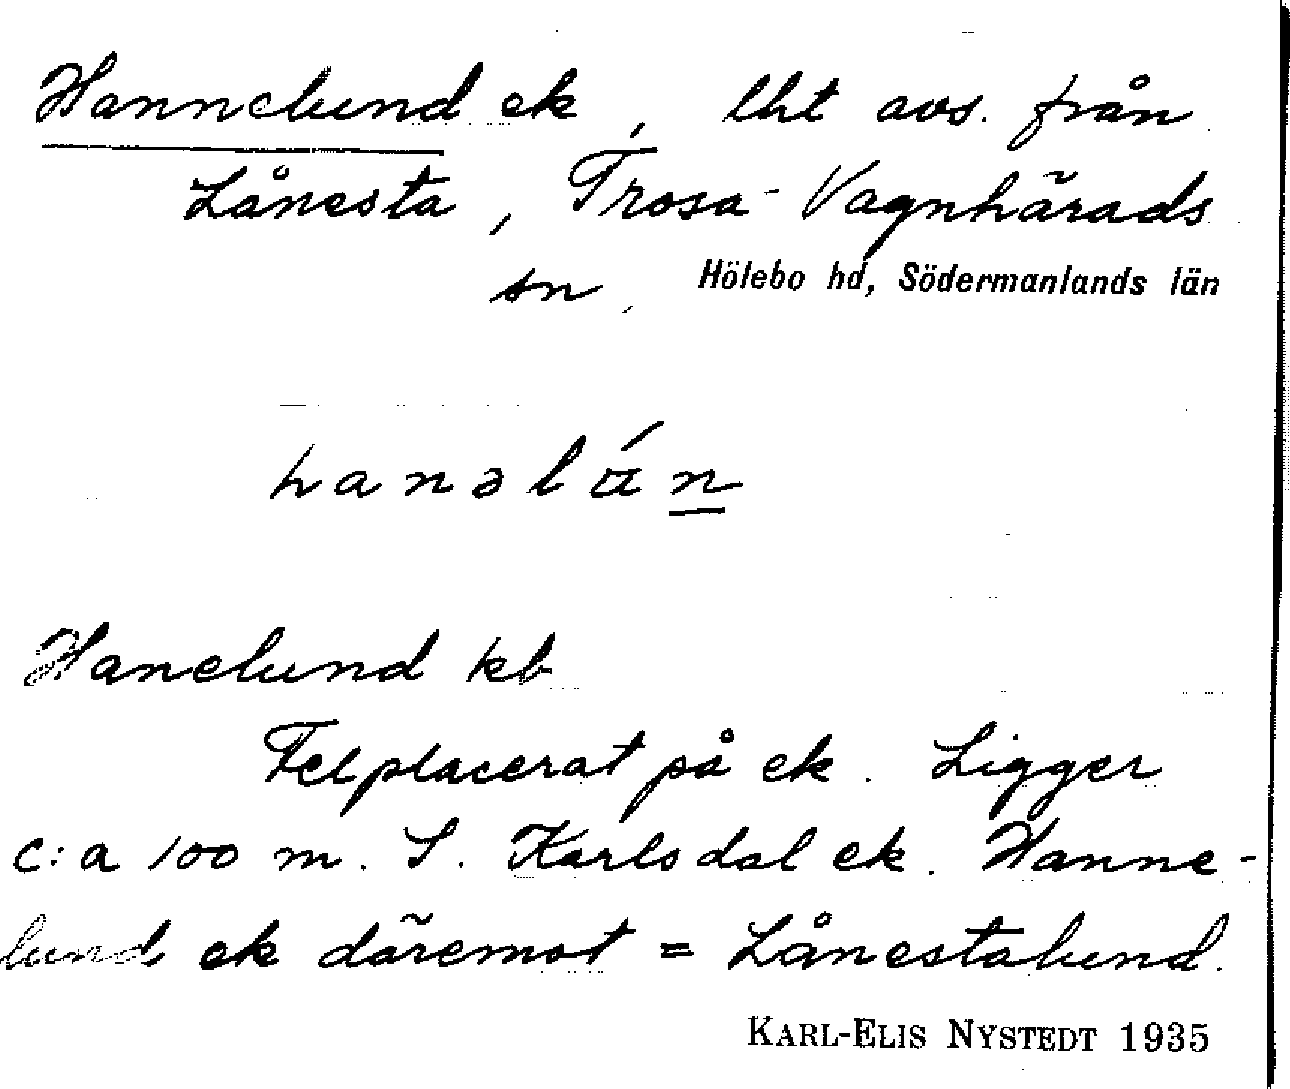 Hannelund ek, lht avs. från
Lånesta, Trosa-Vagnhärads
sn, Hölebo hd, Södermanlands län
hanəlán
Hanelund kb
Felplacerat på ek. Ligger
c:a 100 m. S. Karlsdal ek. Hanne-
lund ek däremot = Lånestalund.
KARL-ELIS NYSTEDT 1935